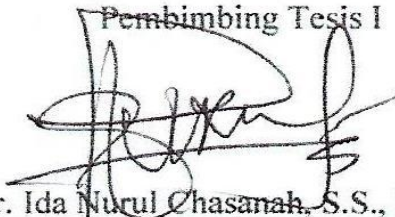 Pembimbing Tesis I
r. Ida Nurul Chasanah, S.S.,